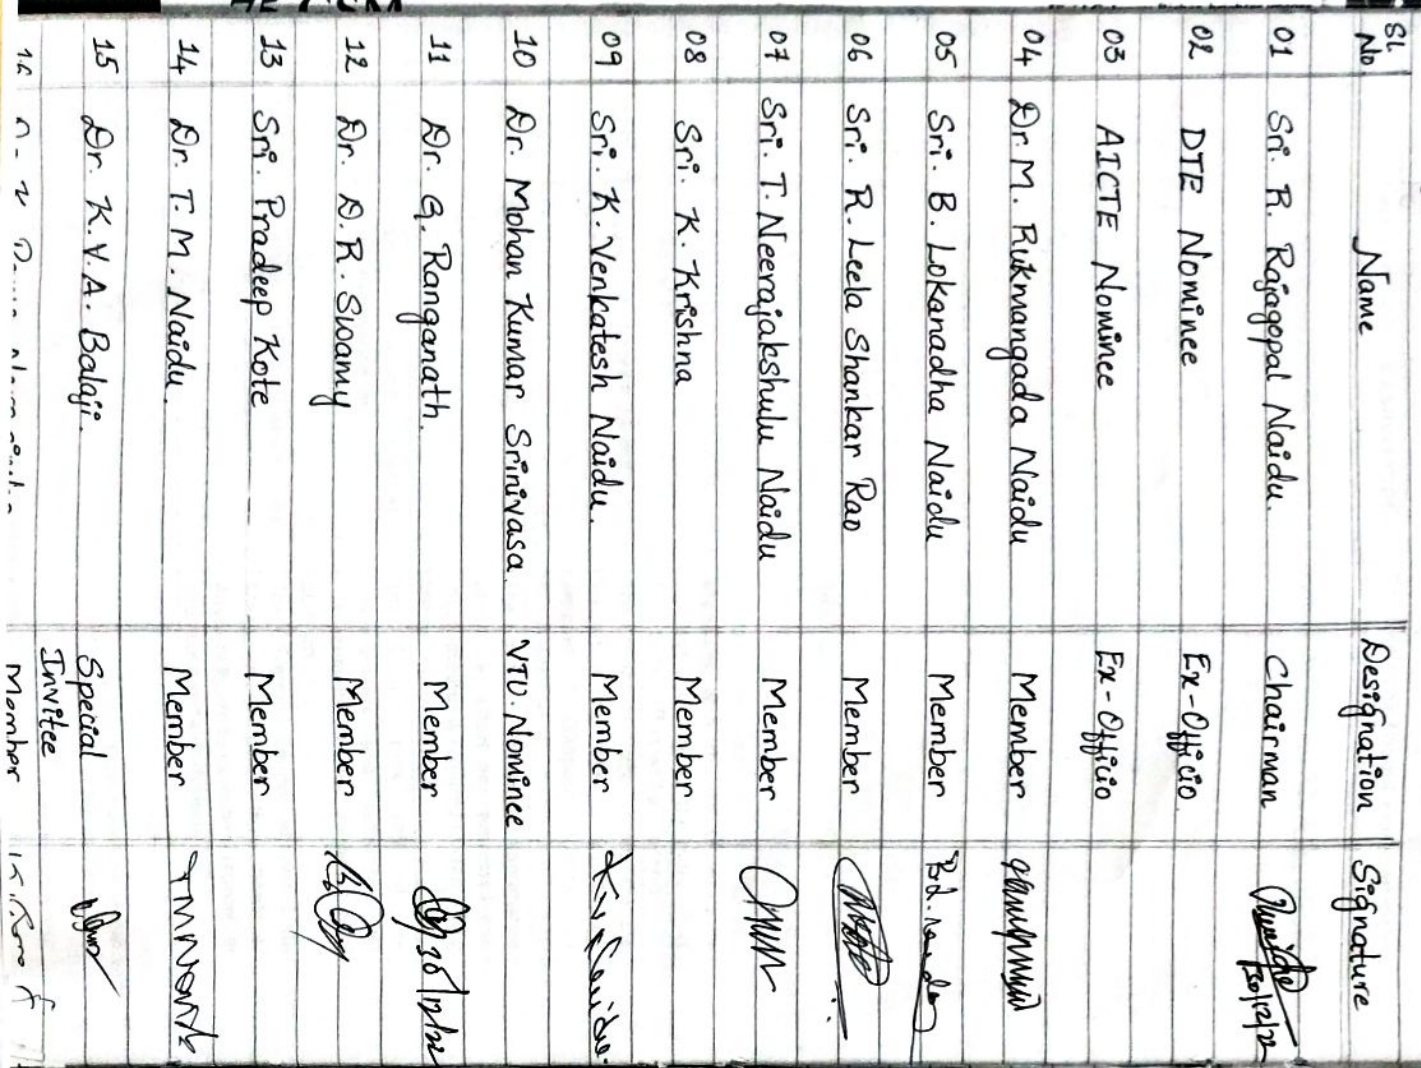 Sl No. Name Designation Signature
01 Sri. R. Rajagopal Naidu. Chairman 30/12/22
02 DTE Nominee Ex-Officio.
03 AICTE Nominee Ex-Officio
04 Dr. M. Rukmangada Naidu Member
05 Sri. B. Lokanadha Naidu Member
06 Sri. R. Leela Shankar Rao Member
07 Sri. T. Neerajakshulu Naidu Member
08 Sri. K. Krishna Member
09 Sri. K. Venkatesh Naidu. Member
10 Dr. Mohan Kumar Srinivasa. VTU. Nominee
11 Dr. G. Ranganath. Member 30/12/22
12 Dr. D. R. Swamy Member
13 Sri. Pradeep Kote Member
14 Dr. T. M. Naidu. Member
15 Dr. K. V. A. Balaji. Special Invitee
16 Member